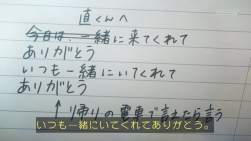 直くんへ
今日は一緒に来てくれて
ありがとう
いつも一緒にいてくれて
ありがとう
↑帰りの電車で言えたら言う
いつも一緒にいてくれてありがとう。